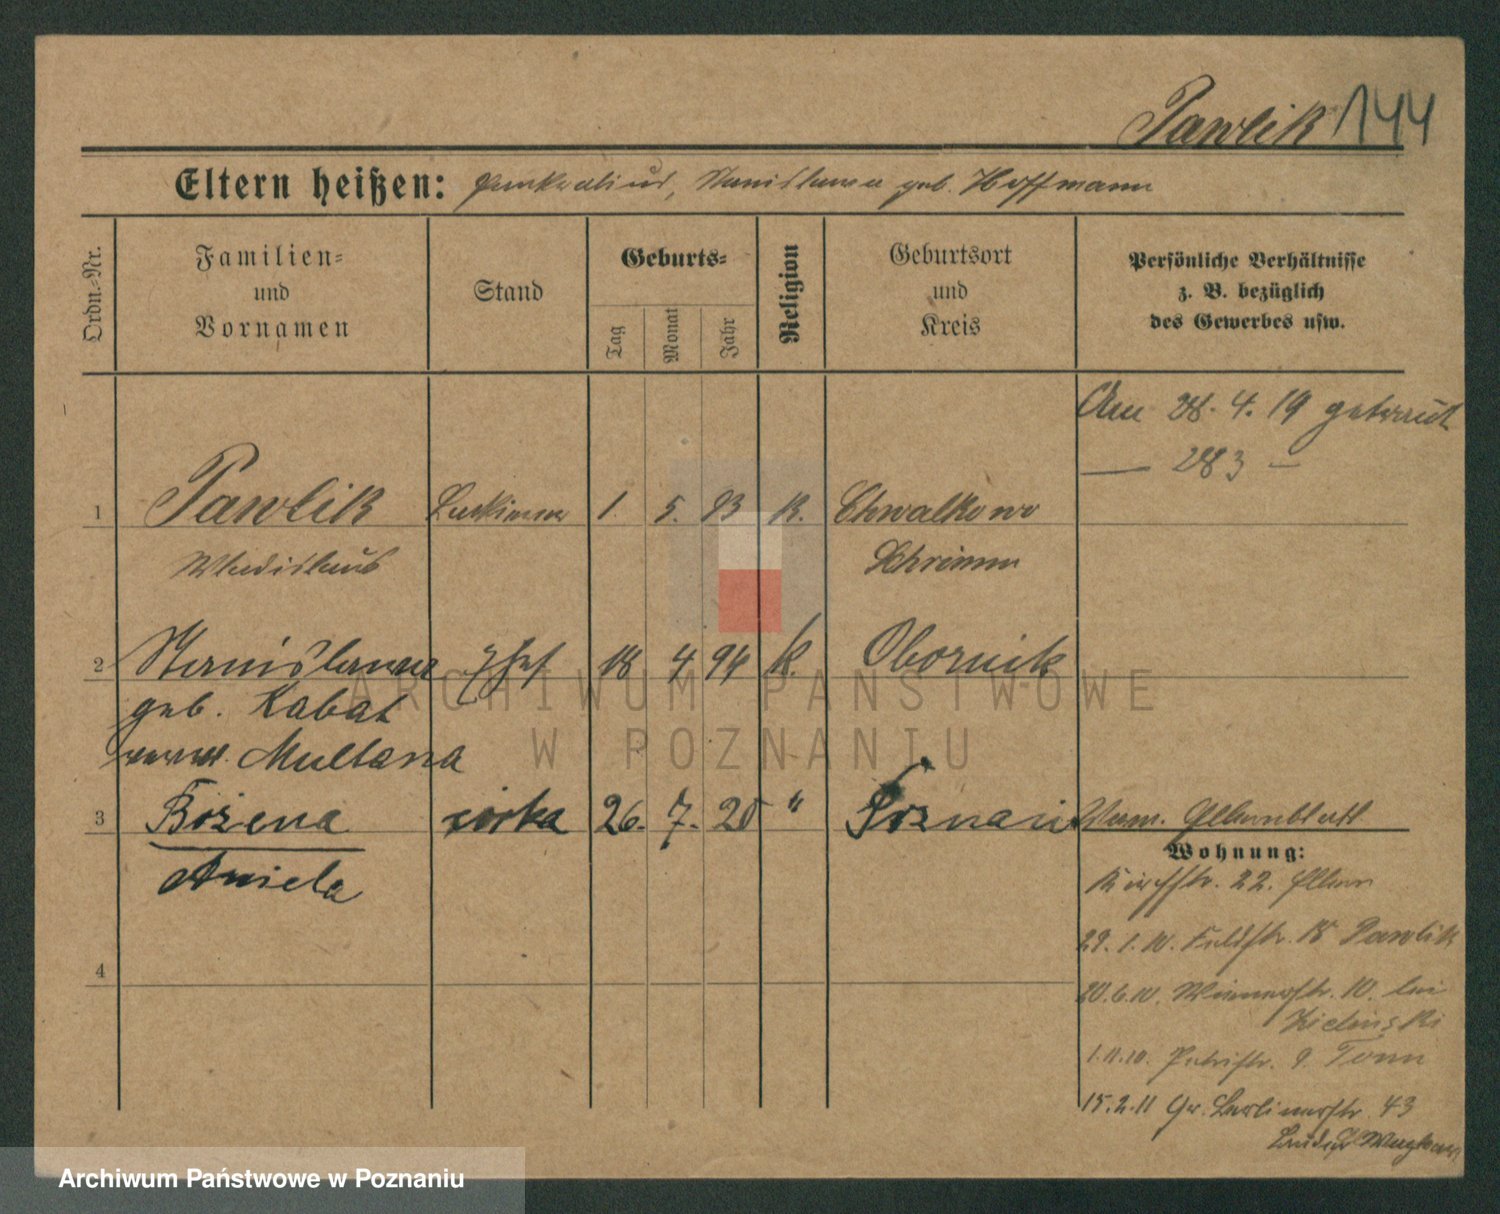 Pawlik 144
Eltern heißen: Pankratius, Stanislawa geb. Hoffmann
Ordn.-Nr.
Familien-
und
Vornamen
Stand
Geburts-
Tag
Monat
Jahr
Religion
Geburtsort
und
Kreis
Persönliche Verhältnisse
z. B. bezüglich
des Gewerbes usw.
Am 28. 4. 19 getraut
— 283 —
1 Pawlik 1. 5. 93 K. Chwalkowo
Wladislaus Schrimm
2 Stanislawa Ehef 18 4 94 K. Obornik
geb. Kabat
verw. Multana
3 Bożena córka 26. 7. 20 " Poznań
Aniela
Wohnung:
Kirchstr. 22. Eltern
29. 1. 10. Feldstr. 15 Pawlik
20.6.10. Wienerstr. 10. bei
Zielinski
4
1.11.10. Petristr. 9. Tonn
15.2.11 Gr. Berlinerstr. 43
ARCHIWUM PAŃSTWOWE
W POZNANIU
Archiwum Państwowe w Poznaniu